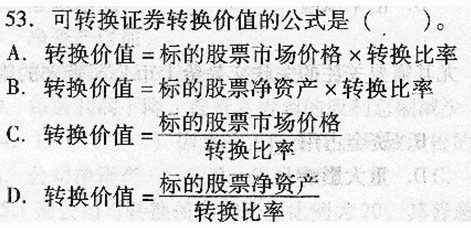 53. 可转换证券转换价值的公式是（　　）。
A. 转换价值 = 标的股票市场价格 × 转换比率
B. 转换价值 = 标的股票净资产 × 转换比率
C. 转换价值 = 标的股票市场价格
转换比率
D. 转换价值 = 标的股票净资产
转换比率